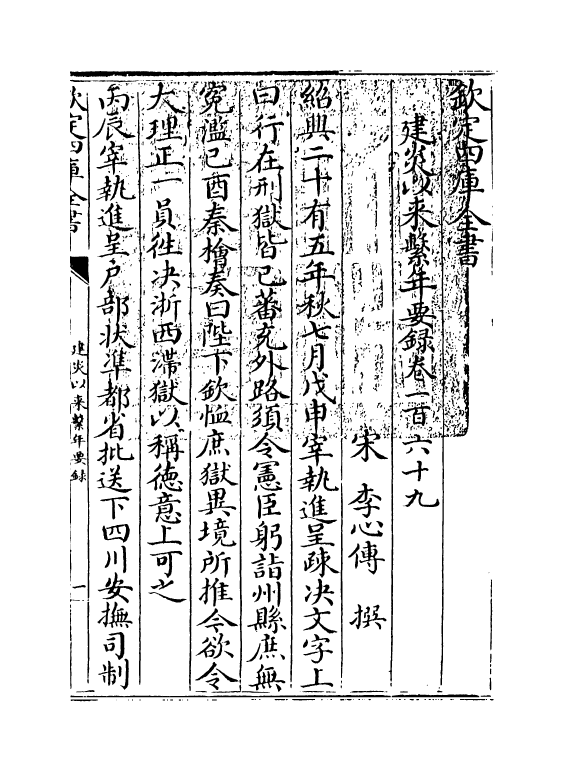 欽定四庫全書
建炎以來繫年要録卷一百六十九
宋 李心傳 撰
紹興二十有五年秋七月戊申宰執進呈疎决文字上
曰行在刑獄皆已蕃充外路須令憲臣躬詣州縣庶無
寃濫己酉秦檜奏曰陛下欽恤庶獄異境所推今欲令
大理正一員徃决浙西滯獄以稱徳意上可之
丙辰宰執進呈户部狀準都省批送下四川安撫司制
欽定四庫全書
建炎以來繫年要録
一